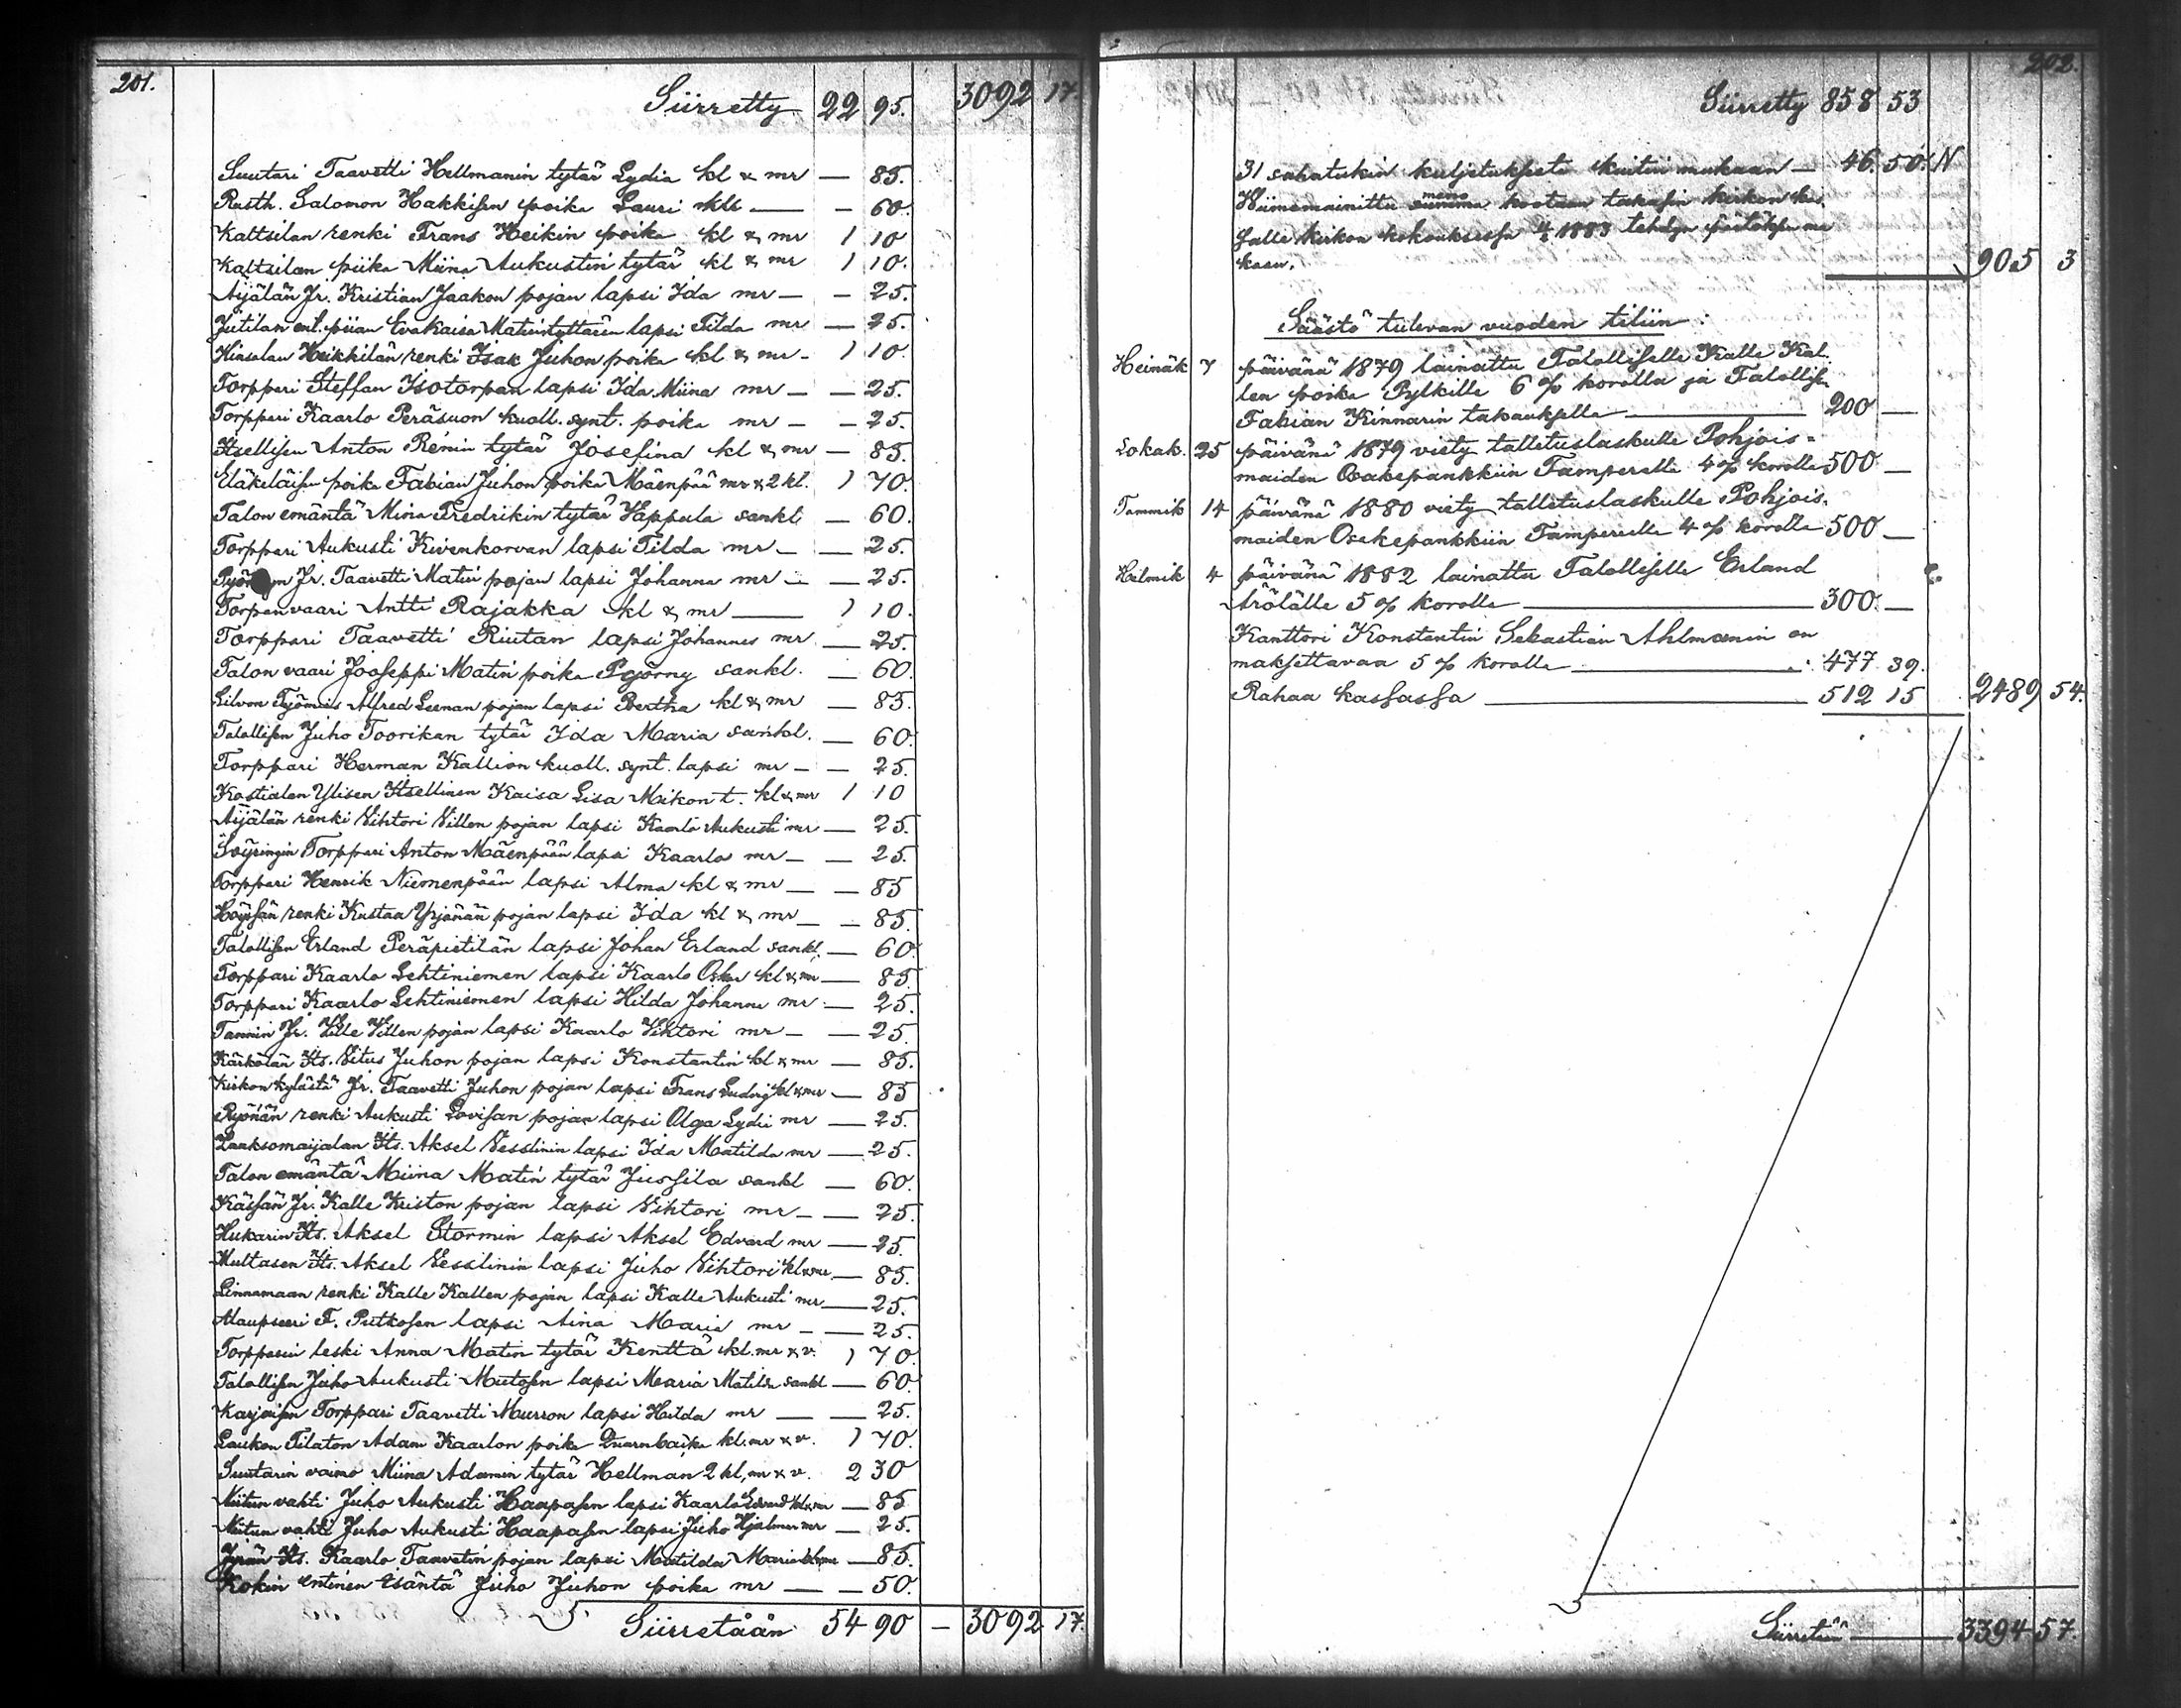 201.
Siirretty 22 95. 3092 17
Suutari Taavetti Hellmanin tytär Lydia kl & mr — 85.
Rusth. Salomon Hakkisen poika Lauri skl — — 60.
Kaltsilan renki Frans Heikin poika kl & mr 1 10
Kaltsilan piika Miina Aukustin tytär kl & mr 1 10.
Äijälän Jr. Kristian Jaakon pojan lapsi Ida mr — — 25.
Jutilan ent. piian Eva Kaisa Matintyttären lapsi Tilda mr — 25.
Heikkilän renki Isak Juhon poika kl & mr - 1 10.
Torppari Steffan Isotorpan lapsi Ida Miina mr — — 25.
Torppari Kaarlo Peräsuon kuoll. synt. poika mr — — 25.
Itsellisen Anton Rênin tytär Josefina kl & mr — 85.
Eläkeläisen poika Fabian Juhon poika Mäenpää mr & 2 kl. 1 70.
Talon emäntä Mina Fredrikin tytär Yappula sankl — 60.
Torppari Aukusti Kivenkorvan lapsi Tilda mr — — 25.
Jr. Taavetti Matin pojan lapsi Johanna mr — — 25.
Torpanvaari Antti Rajakka kl & mr — 1 10.
Torppari Taavetti Riutan lapsi Johannes mr — 25.
Talon vaari Jooseppi Matin poika Pyörny sankl. — 60.
Työmies Alfred Leenan pojan lapsi Bertha kl & mr — 85.
Talollisen Juho Toorikan tytär Ida Maria sankl. — 60.
Torppari Herman Kallion kuoll. synt. lapsi mr — — 25.
Kostialan Ylisen Itsellinen Kaisa Lisa Mikon t. kl & mr 1 10
Äijälän renki Vihtori Villen pojan lapsi Kaarlo Aukusti mr — 25.
Söyringin Torppari Anton Mäenpään lapsi Kaarlo mr — — 25.
Torppari Henrik Niemenpään lapsi Alma kl & mr — — 85
Höyssän renki Kustaa Yrjänän pojan lapsi Ida kl & mr — — 85.
Talollisen Erland Peräpietilän lapsi Johan Erland sankl. — 60.
Torppari Kaarlo Lehtiniemen lapsi Kaarlo Oskar kl & mr — 85.
Torppari Kaarlo Lehtiniemen lapsi Hilda Johanna mr — 25.
Tannin Jr. Ville Villen pojan lapsi Kaarlo Vihtori mr — — 25.
Kärkölän Its. Vitus Juhon pojan lapsi Konstantin kl & mr — 85.
Kirkon kylästä Jr. Taavetti Juhon pojan lapsi Frans Ludvig kl & mr — 85
Ryönän renki Aukusti Lovisan pojan lapsi Olga Lydia mr — 25.
Laaksomaijalan Its. Aksel Vesslinin lapsi Ida Matilda mr — 25.
Talon emäntä Miina Matin tytär Jussila sankl — 60.
Kässän Jr. Kalle Kriston pojan lapsi Vihtori mr — — 25.
Hukarin Its. Aksel Stormin lapsi Aksel Edvard mr — 25.
Multasen Its. Aksel Vesslinin lapsi Juho Vihtori kl & mr — 85.
Linnamaan renki Kalle Kallen pojan lapsi Kalle Aukusti mr — 25.
Alaupseeri F. Putkosen lapsi Aina Maria mr — — 25.
Torpparin leski Anna Matin tytär Kenttä kl. mr & v. 1 70.
Talollisen Juho Aukusti Mutosen lapsi Maria Matilda sankl — 60.
Karjaisen Torppari Taavetti Murron lapsi Hilda mr — — 25.
Laukon Tilaton Adam Kaarlon poika kl. mr & v. 1 70.
Suutarin vaimo Miina Adamin tytär Hellman 2 kl, mr & v. 2 30
Niitun vahti Juho Aukusti Haapasen lapsi Kaarlo Edvard kl & mr — 85
Niitun vahti Juho Aukusti Haapasen lapsi Juho Hjalmar mr — 25.
Its. Kaarlo Taavetin pojan lapsi Matilda Maria kl & mr — 85.
Kokin entinen Isäntä Juho Juhon poika mr — — 50.
Siirretään 54 90 — 3092 17.
202.
Siirretty 858 53
31 sahatukin kuljetuksesta kuitin mukaan — 46. 50. N
Wiimemainittu summa meno kootaan takasin kirkon kas,
salle kirkon kokouksessa 4/2 1883 tehdyn päätöksen mu
kaan. 905 3
Säästö tulevan vuoden tiliin:
Heinäk 7 päivänä 1879 lainattu Talolliselle Kalle Kal.
len poika Pylkille 6 % korolla ja Tallollisen
Fabian Kinnarin takauksella — 200 —
Lokak. 25 päivänä 1879 viety talletuslaskulle Pohjois-
maiden Osakepankkiin Tamperelle 4 % korolla 500 —
Tammik 14 päivänä 1880 viety talletuslaskulle Pohjois.
maiden Osakepankkiin Tamperelle 4 % korolla 500 —
Helmik 4 päivänä 1882 lainattu Talolliselle Erland
Arölälle 5 % korolla — 300. —
Kanttori Konstantin Sebastian Ahlmanin on
maksettavaa 5 % korolla — 477 39.
Rahaa kassassa — 512 15 2489 54.
Siirretään — 3394 57.